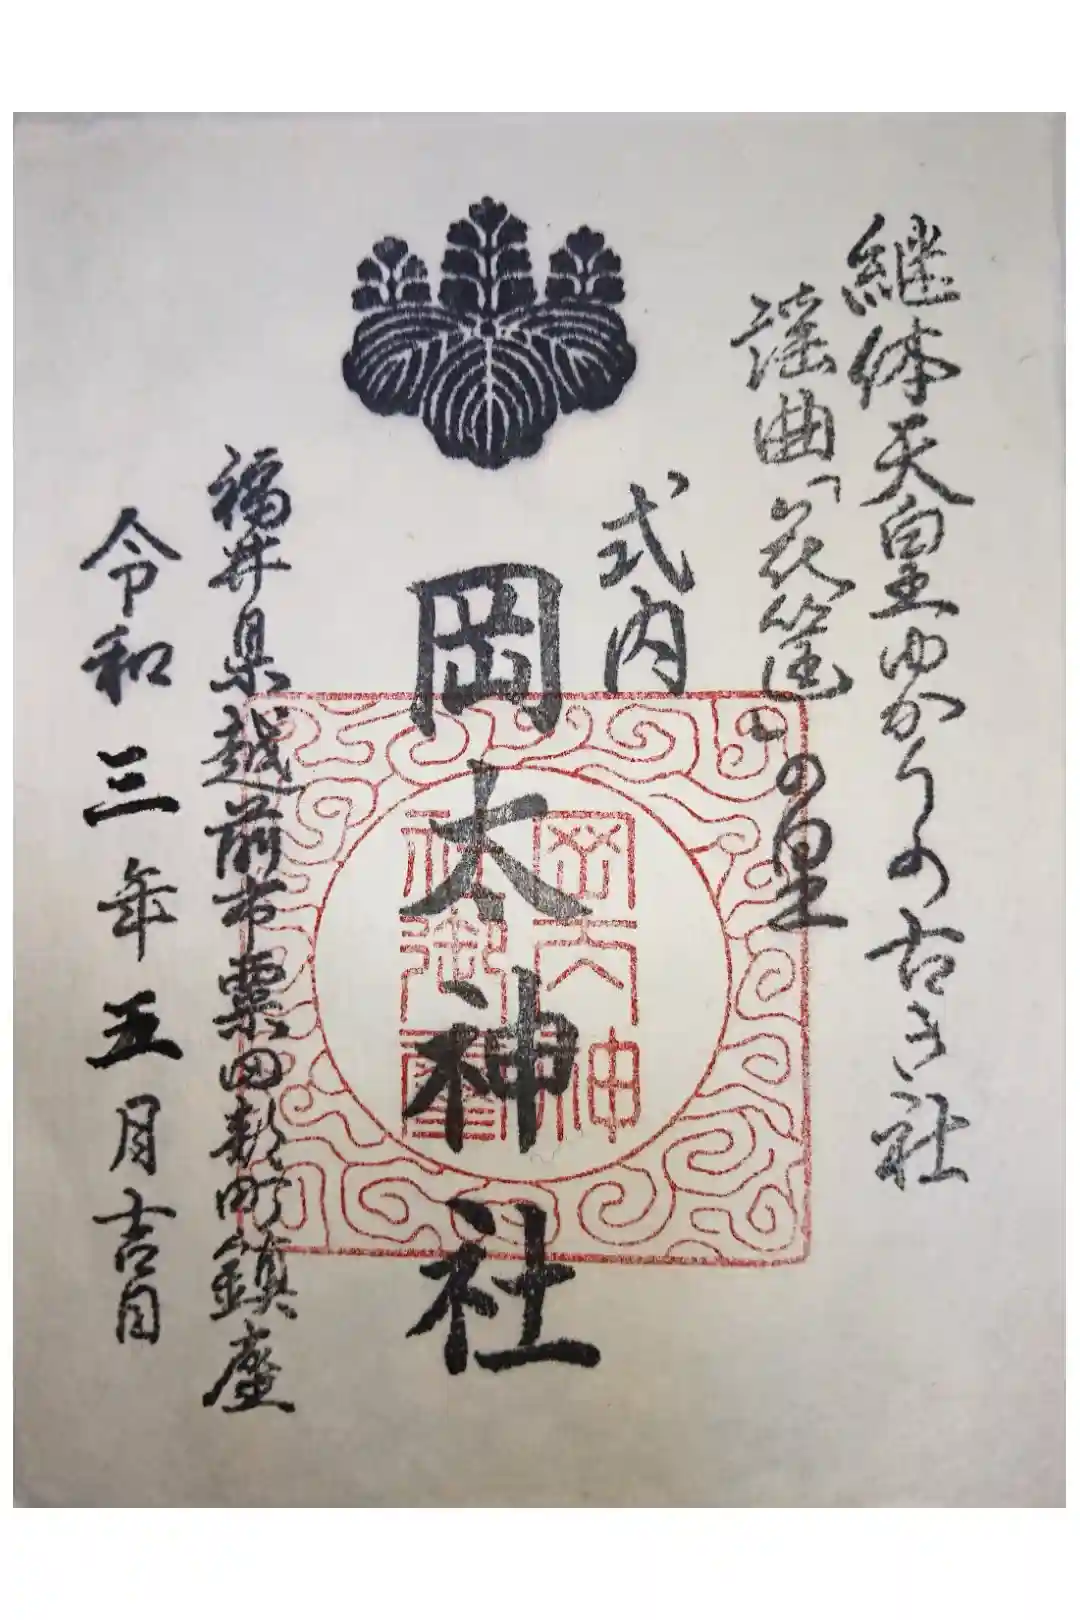 継体天皇ゆかりの古き社
謡曲「花筐」の里
式内
岡太神社
岡太神
社御璽
福井県越前市粟田部町鎮座
令和三年五月吉日